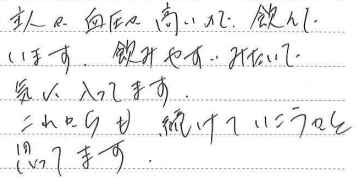 主人の血圧が高いので飲んで
います。飲みやすいみたいで
気に入ってます。
これからも続けていこうと
思ってます。